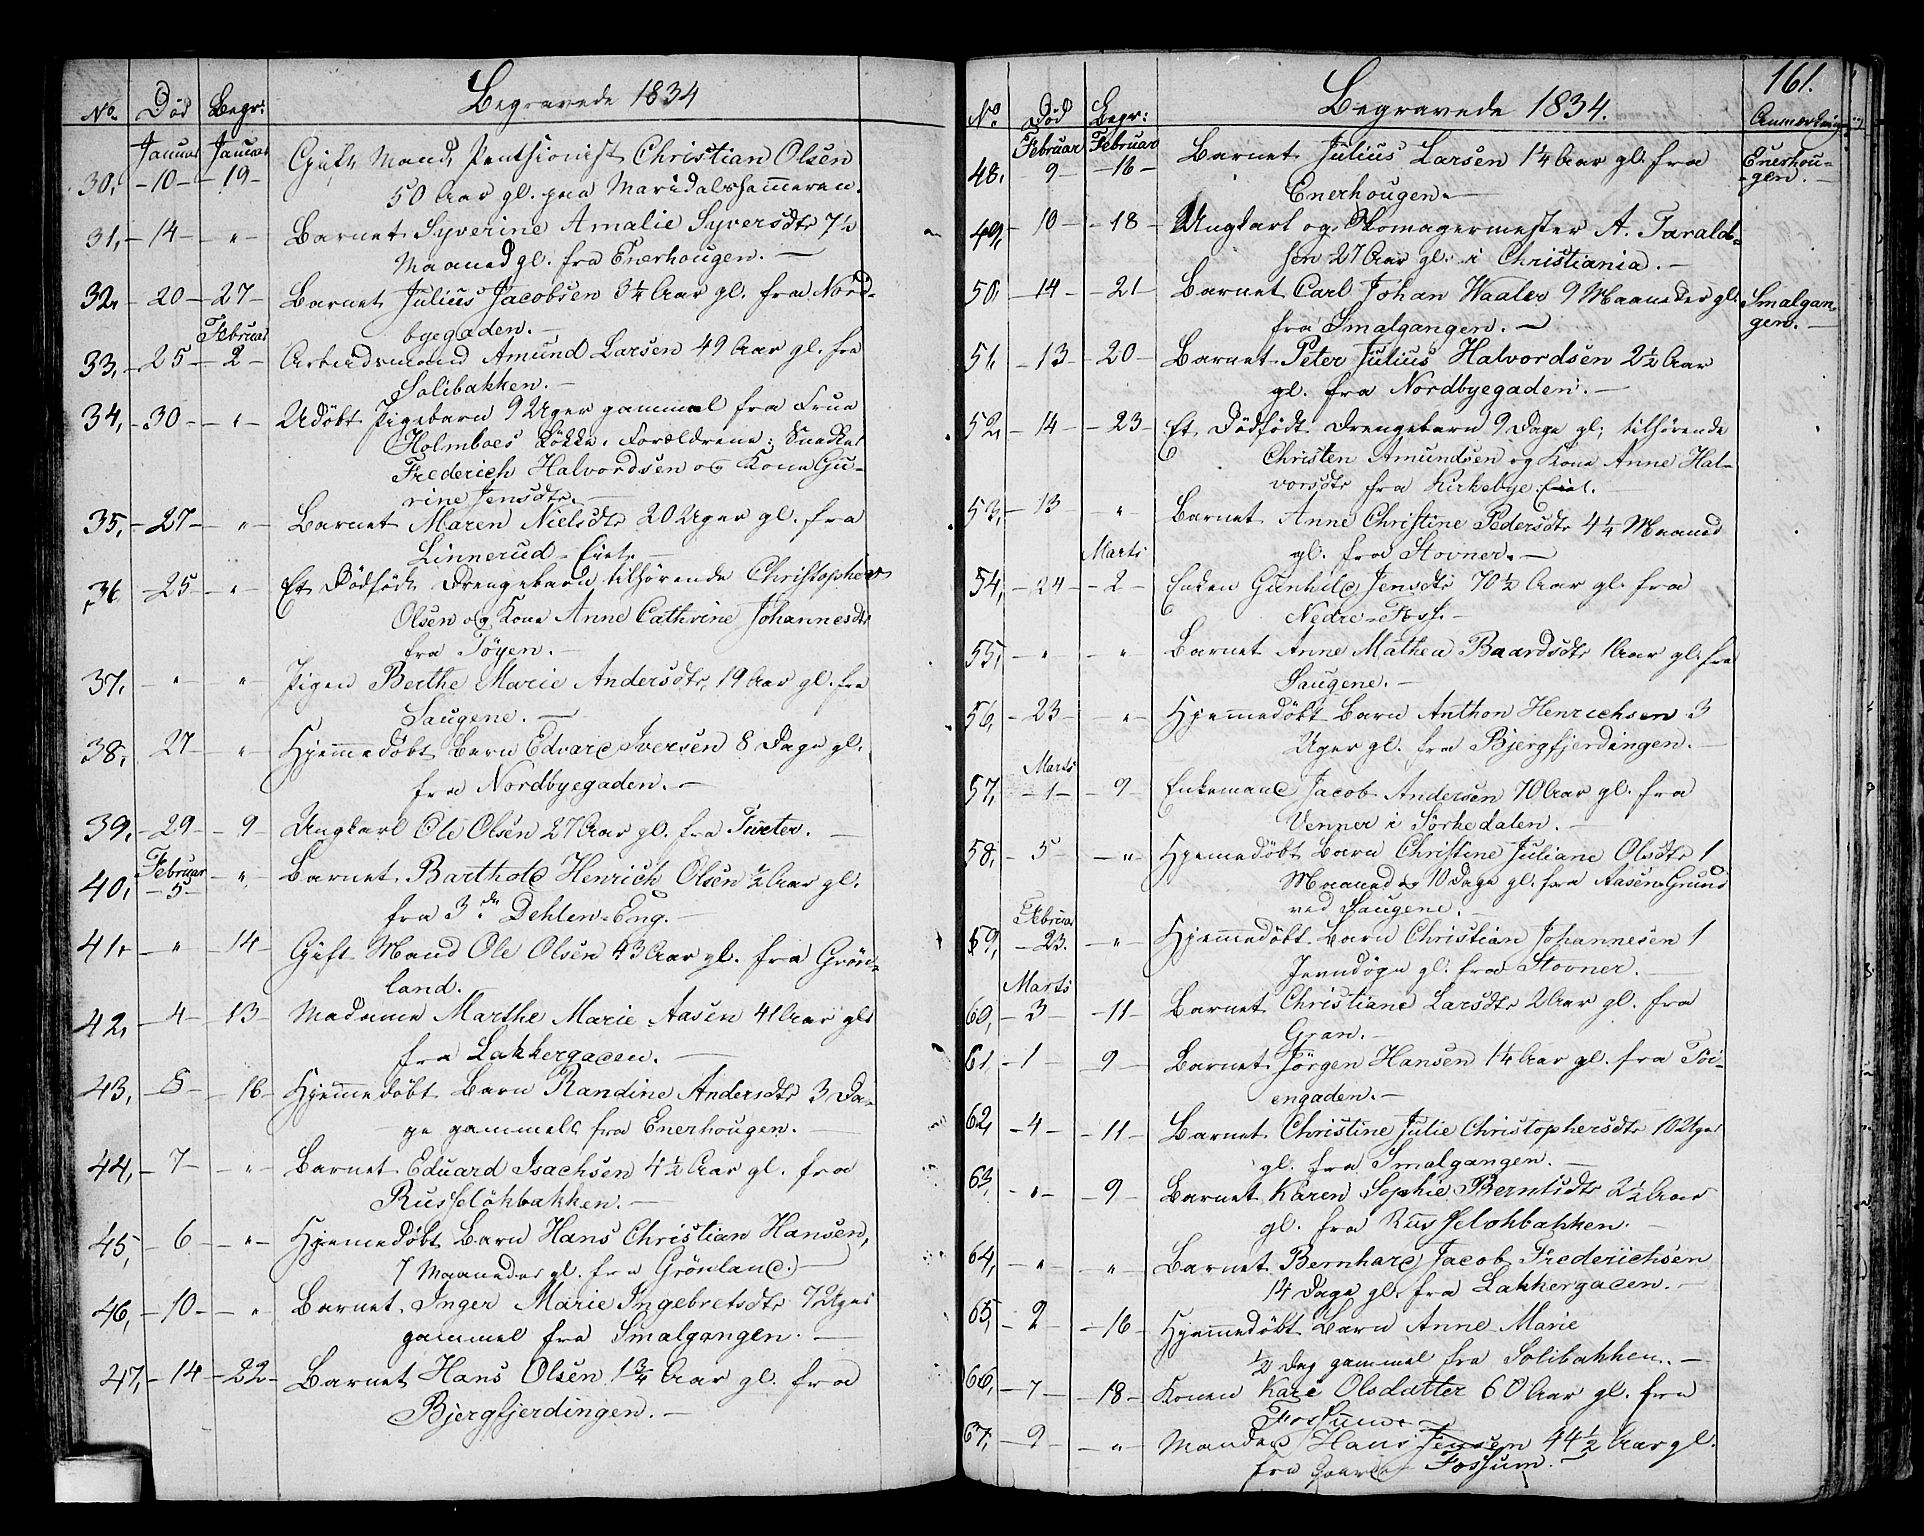 Begravede 1834
No. Död Begr:
Januar Januar
30, -10- -19- Gift Mand Pentsionist Christian Olsen
50 Aar gl. paa Maridalshammeren.
31, -14- -"- Barnet Syverine Amalie Syversdtr 7½
Maaned gl. fra Enerhougen. -
32, -20- 27- Barnet Julius Jacobsen 3¼ Aar gl. fra Nord-
byegaden. -
Februar
33, -25- -2- Arbeidsmand Amund Larsen 49 Aar gl. fra
Solibakken. -
34, -30- -"- Udöbt Pigebarn 9 Uger gammel fra Frue
Holmboes Lökke, Forældrene: Snedker
Frederich Halvordsen og Kone Gu-
rine Jensdtr. -
35, -27- -"- Barnet Maren Nielsdtr 20 Uger gl. fra
Linnerud-Eiet. -
36, -25- -"- Et Dödfödt Drengebarn tilhörende Christopher
Olsen og Kone Anne Cathrine Johannesdtr
fra Töyen. -
37, -"- -"- Pigen Berthe Marie Andersdtr, 19 Aar gl. fra
Saugene. -
38, -27- -"- Hjemmedöbt Barn Edvard Iversen 8 Dage gl.
fra Nordbyegaden. -
39, -29- -9- Ungkarl Ole Olsen 27 Aar gl. fra Tveter. -
Februar
40, -5- -"- Barnet Barthold Henrich Olsen ½ Aar gl.
fra 3de Dehlen-Eng. -
41, -"- -14- Gift Mand Ole Olsen 43 Aar gl. fra Grön-
land. -
42, -4- -13- Madame Marthe Marie Aasen 41 Aar gl.
fra Lakkergaden. -
43, -5- -16- Hjemmedöbt Barn Randine Andersdtr 3 Da-
ge gammel fra Enerhougen. -
44, -7- -"- Barnet Eduard Isachsen 4½ Aar gl. fra
Russelökbakken. -
45, -6- -"- Hjemmedöbt Barn Hans Christian Hansen,
7 Maaneder gl. fra Grönland. -
46, -10- -"- Barnet Inger Marie Ingebretsdtr 7 Uger
gammel fra Smalgangen. -
47, -14- -22- Barnet Hans Olsen 1¾ Aar gl. fra
Bjergfjerdingen. -
161.
Begravede 1834.
No. Död Begr: Anmerkning
Februar Februar
48, -9- -16- Barnet Julius Larsen 1¼ Aar gl. fra Enerhou-
Enerhougen. - -gen. -
49, -10- -18- Ungkarl og Skomagermester A. Tarald-
sen 27 Aar gl. i Christiania. -
50, -14- -21- Barnet Carl Johan Waaler 9 Maaneder gl. Smalgan-
fra Smalgangen. - gen. -
51, -13- -20- Barnet Peter Julius Halvordsen 2½ Aar
gl. fra Nordbyegaden. -
52, -14- -23- Et Dödfödt Drengebarn 9 Dage gl; tilhörende
Christen Amundsen og Kone Anne Hal-
vorsdtr fra Kirkebye-Eiet.
53, -13- -"- Barnet Anne Christine Pedersdtr 4¼ Maaned
gl. fra Stovner. -
Marts
54, -24- -2- Enken Gunhild Jensdtr 70½ Aar gl. fra
Nedre-Foss. -
55, -"- -"- Barnet Anne Mathea Baardsdtr 1 Aar gl. fra
Saugene. -
56, -23- -"- Hjemmedöbt Barn Anthon Henrichsen 3
Uger gl. fra Bjergfjerdingen. -
Marts
57, -1- -9- Enkemand Jacob Andersen 70 Aar gl. fra
Venner i Sörkedalen. -
58, -5- -"- Hjemmedöbt Barn Christine Juliane Olsdtr 1
Maaned og 10 Dage gl. fra Aasen-Grund
ved Saugene. -
Februar
59, -23. -"- Hjemmedöbt Barn Christian Johannesen 1
Jevndögn gl. fra Stovner. -
Marts
60, -3- -11- Barnet Christiane Larsdtr 2 Aar gl. fra
Gran. -
61 -1- 9- Barnet Jörgen Hansen 1¼ Aar gl. fra Töi-
engaden. -
62, -4- -11- Barnet Christine Julie Christophersdtr 10 Uger
gl. fra Smalgangen. -
63, -"- -9- Barnet Karen Sophie Berntsdtr 2½ Aar
gl. fra Russelökbakken. -
64, -"- -"- Barnet Bernhard Jacob Frederichsen
14 Dage gl. fra Lakkergaden. -
65, -2- -16- Hjemmedöbt Barn Anne Marie
½ Dag gammel fra Solibakken. -
66, -7- -18- Konen Kari Olsdatter 60 Aar gl. fra
Fossum -
67, -9- -"- Manden Hans Jensen 44½ Aar gl.
fra Fossum. -